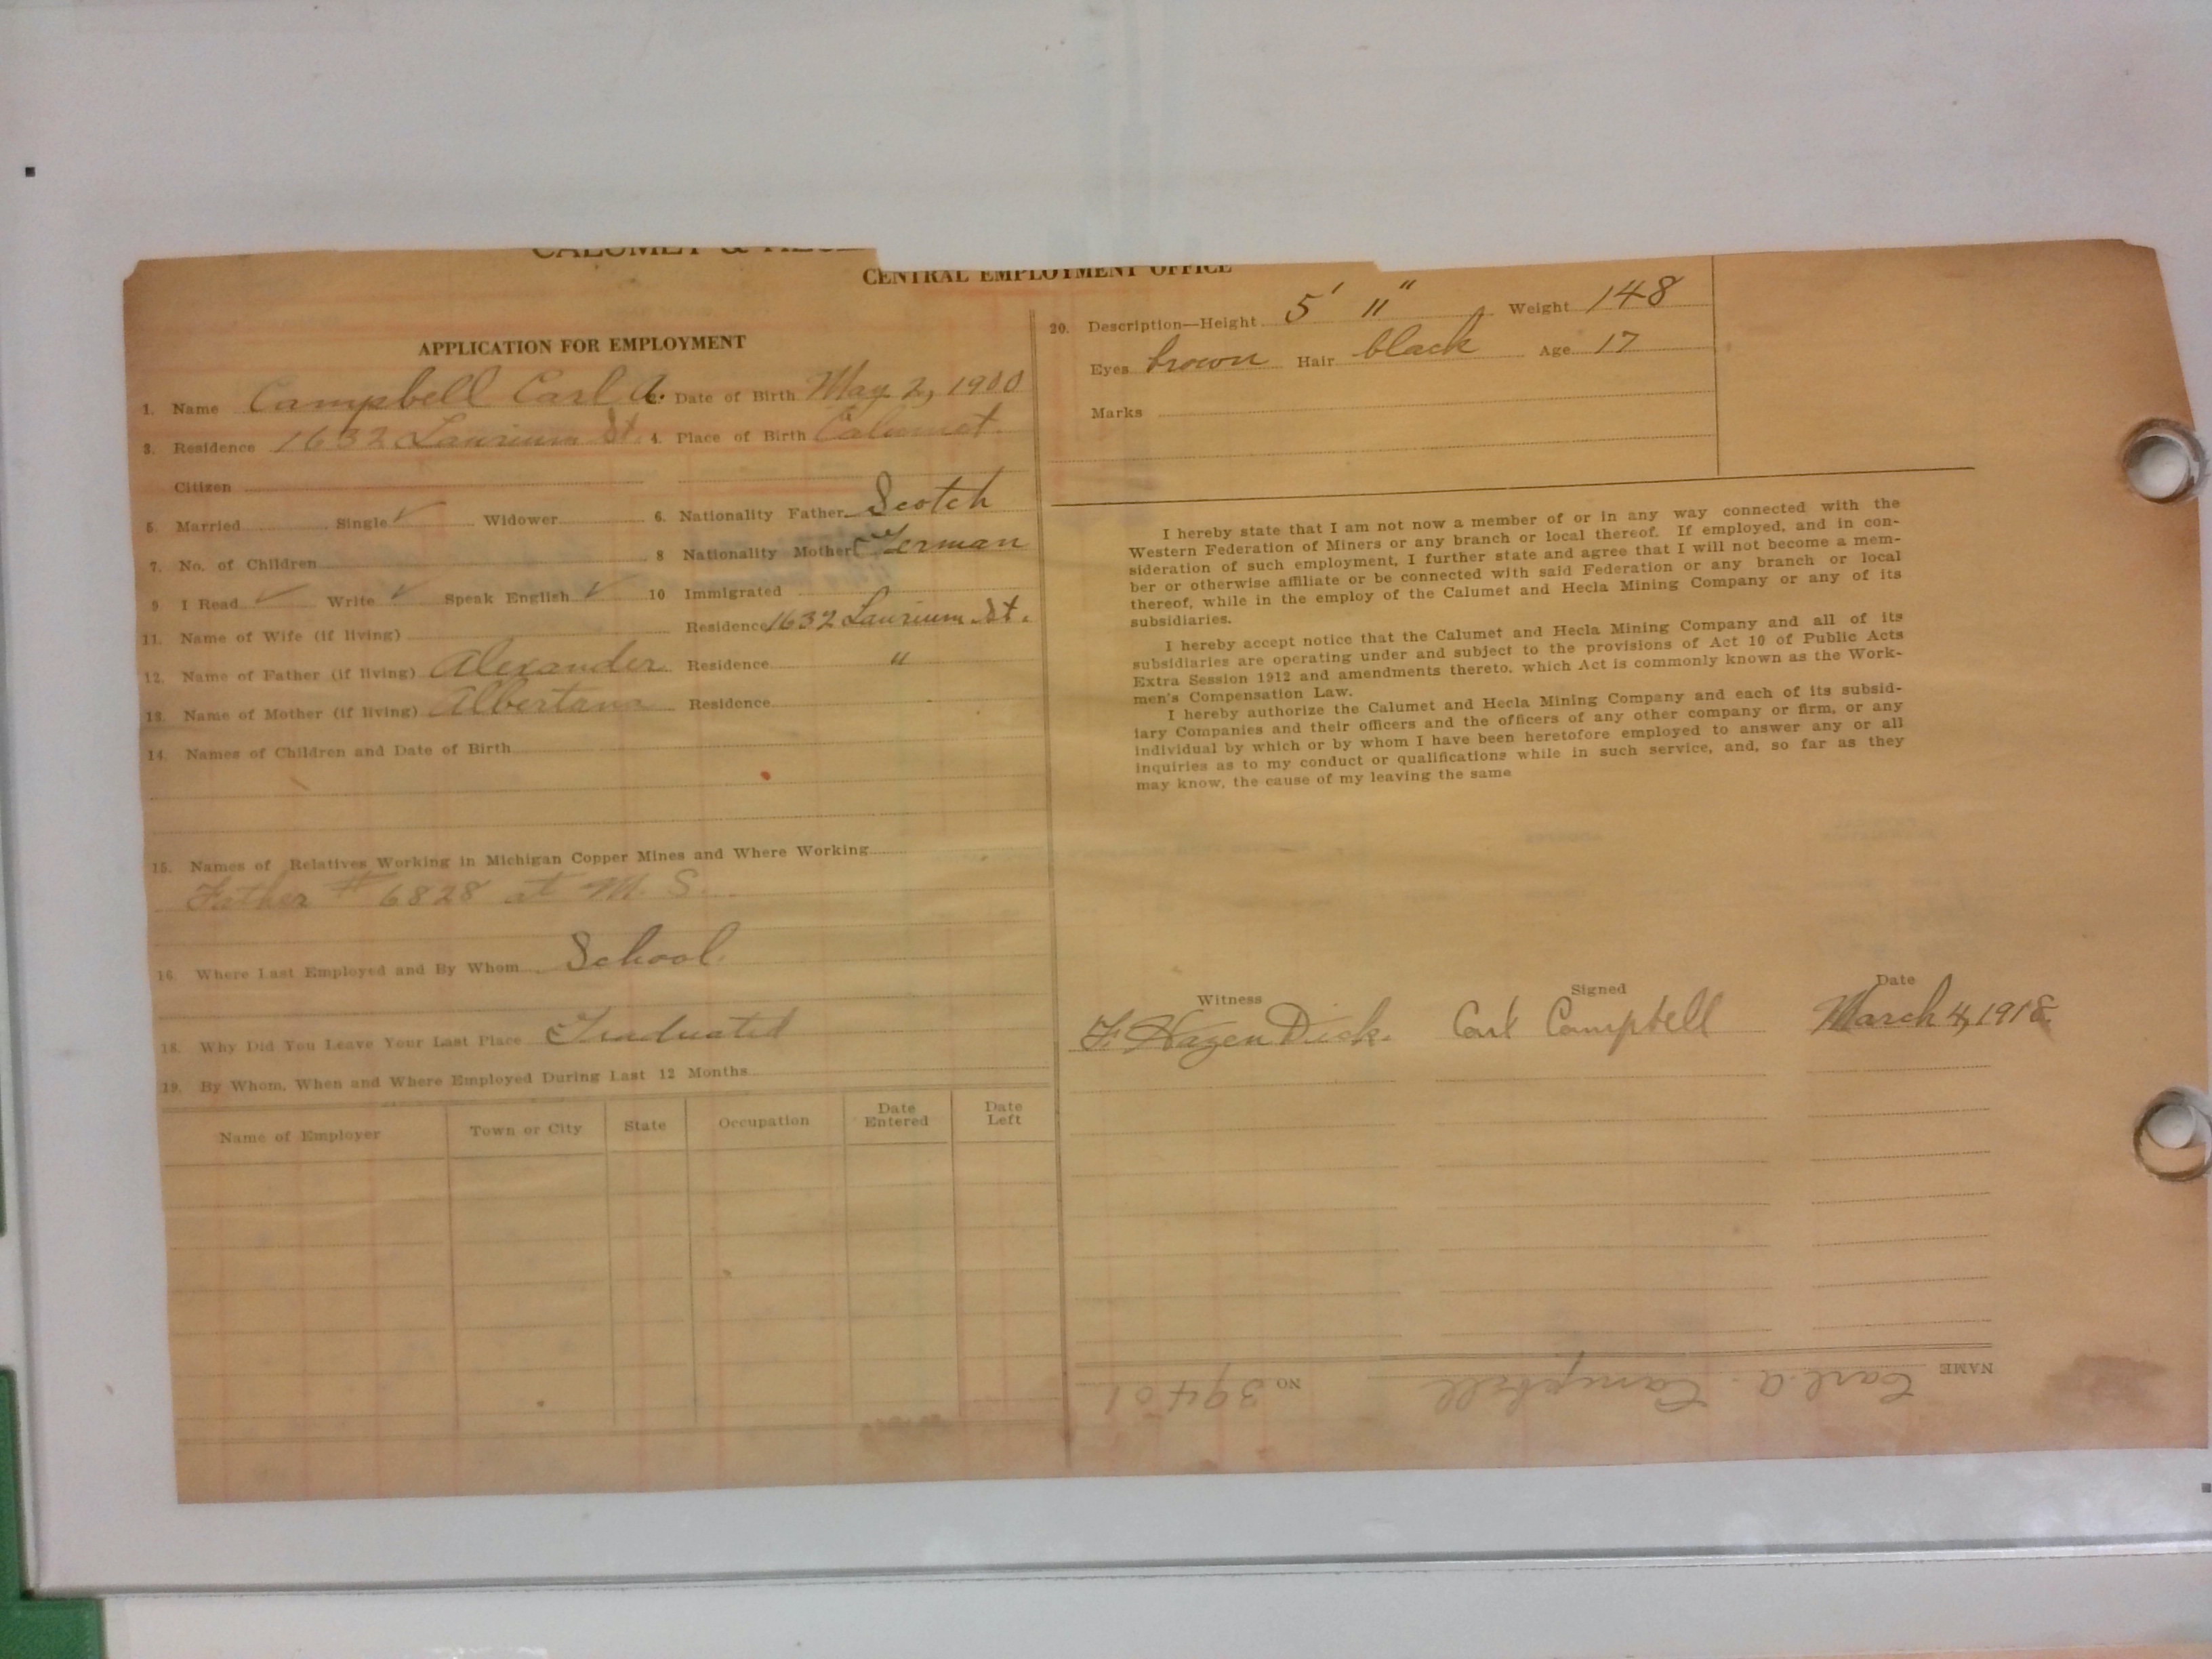 CALUMET &
CENTRAL EMPLOYMENT OFFICE
APPLICATION FOR EMPLOYMENT
1. Name Campbell Carl A. 2. Date of Birth May 2, 1900
3. Residence 1632 Laurium St. 4. Place of Birth Calumet
Citizen
5. Married Single ✓ Widower 6. Nationality Father Scotch
7. No. of Children 8 Nationality Mother German
9 I Read ✓ Write ✓ Speak English ✓ 10 Immigrated
11. Name of Wife (if living) Residence 1632 Laurium St.
12. Name of Father (if living) Alexander Residence "
13. Name of Mother (if living) Albertana Residence
14. Names of Children and Date of Birth
15. Names of Relatives Working in Michigan Copper Mines and Where Working
Father # 6828 at M. S.
16. Where Last Employed and By Whom School.
18. Why Did You Leave Your Last Place Graduated
19. By Whom, When and Where Employed During Last 12 Months
Name of Employer Town or City State Occupation Date Entered Date Left
20. Description—Height 5' 11" Weight 148
Eyes brown Hair black Age 17
Marks
I hereby state that I am not now a member of or in any way connected with the
Western Federation of Miners or any branch or local thereof. If employed, and in con-
sideration of such employment, I further state and agree that I will not become a mem-
ber or otherwise affiliate or be connected with said Federation or any branch or local
thereof, while in the employ of the Calumet and Hecla Mining Company or any of its
subsidiaries.
I hereby accept notice that the Calumet and Hecla Mining Company and all of its
subsidiaries are operating under and subject to the provisions of Act 10 of Public Acts
Extra Session 1912 and amendments thereto, which Act is commonly known as the Work-
men's Compensation Law.
I hereby authorize the Calumet and Hecla Mining Company and each of its subsid-
iary Companies and their officers and the officers of any other company or firm, or any
individual by which or by whom I have been heretofore employed to answer any or all
inquiries as to my conduct or qualifications while in such service, and, so far as they
may know, the cause of my leaving the same
Witness Signed Date
F. Hazen Dick. Carl Campbell March 4, 1918.
NAME Carl A. Campbell NO 39401